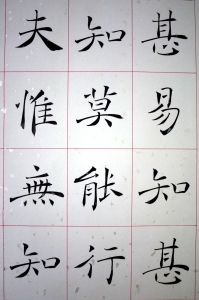 甚易知甚
知莫能行
夫惟無知